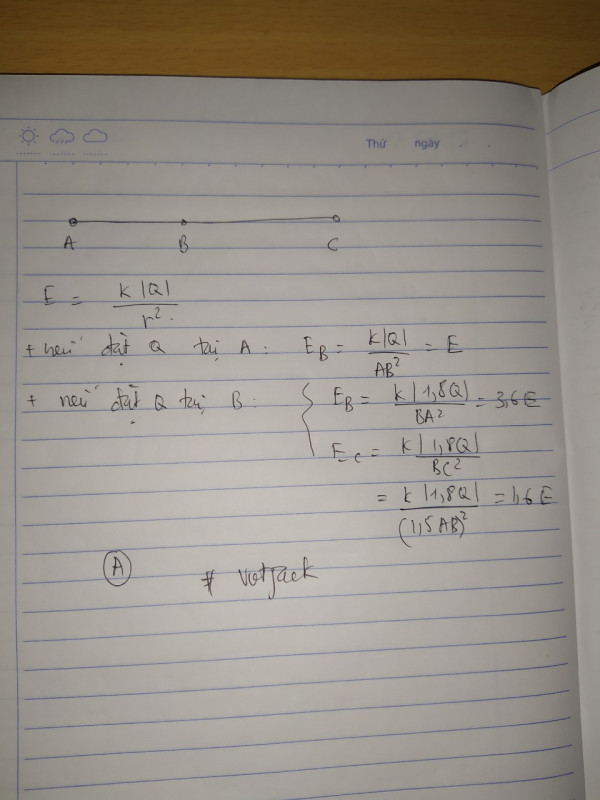 Thứ ngày
A B C
E = k|Q| / r².
+ nếu đặt Q tại A: E_B = k|Q| / AB² = E
+ nếu đặt Q tại B: E_B = k|1,8Q| / BA² = 3,6E
E_C = k|1,8Q| / BC²
= k|1,8Q| / (1,5AB)² = 1,6E
A # votjack